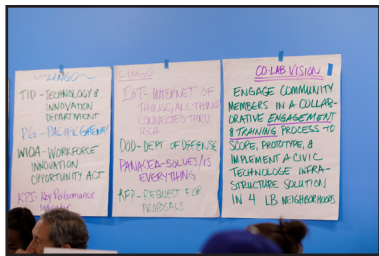 ~LINGO~
TID - TECHNOLOGY &
INNOVATION
DEPARTMENT
PG - PACIFIC GATEWAY
WIOA - WORKFORCE
INNOVATION
OPPORTUNITY ACT
KPI - Key Performance
LINGO
IOT - INTERNET OF
THINGS/ALL THINGS
CONNECTED THRU
TECH
DOD - DEPT OF DEFENSE
PANACEA - SOLVES/IS
EVERYTHING
RFP - REQUEST FOR
PROPOSALS
CO-LAB VISION
ENGAGE COMMUNITY
MEMBERS IN A COLLAB-
ORATIVE ENGAGEMENT
& TRAINING PROCESS TO
SCOPE, PROTOTYPE, &
IMPLEMENT A CIVIC
TECHNOLOGY INFRA-
STRUCTURE SOLUTION
IN 4 LB NEIGHBORHOODS